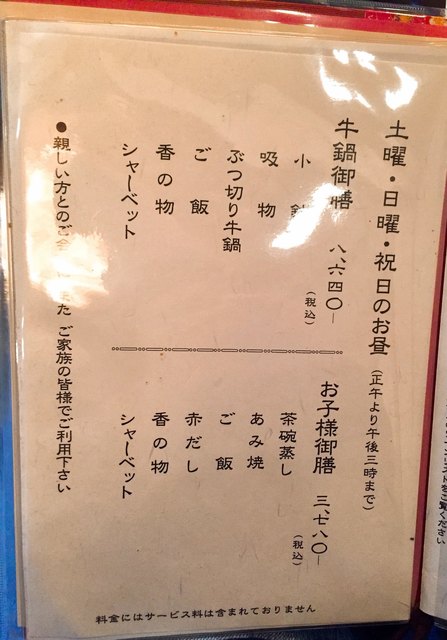 土曜・日曜・祝日のお昼(正午より午後三時まで)
牛鍋御膳 八、六四〇― (税込)
小
吸物
ぶつ切り牛鍋
ご飯
香の物
シャーベット
お子様御膳 三、七八〇― (税込)
茶碗蒸し
あみ焼
ご飯
赤だし
香の物
シャーベット
●親しい方とのご た ご家族の皆様でご利用下さい
料金にはサービス料は含まれておりません
ご覧ください